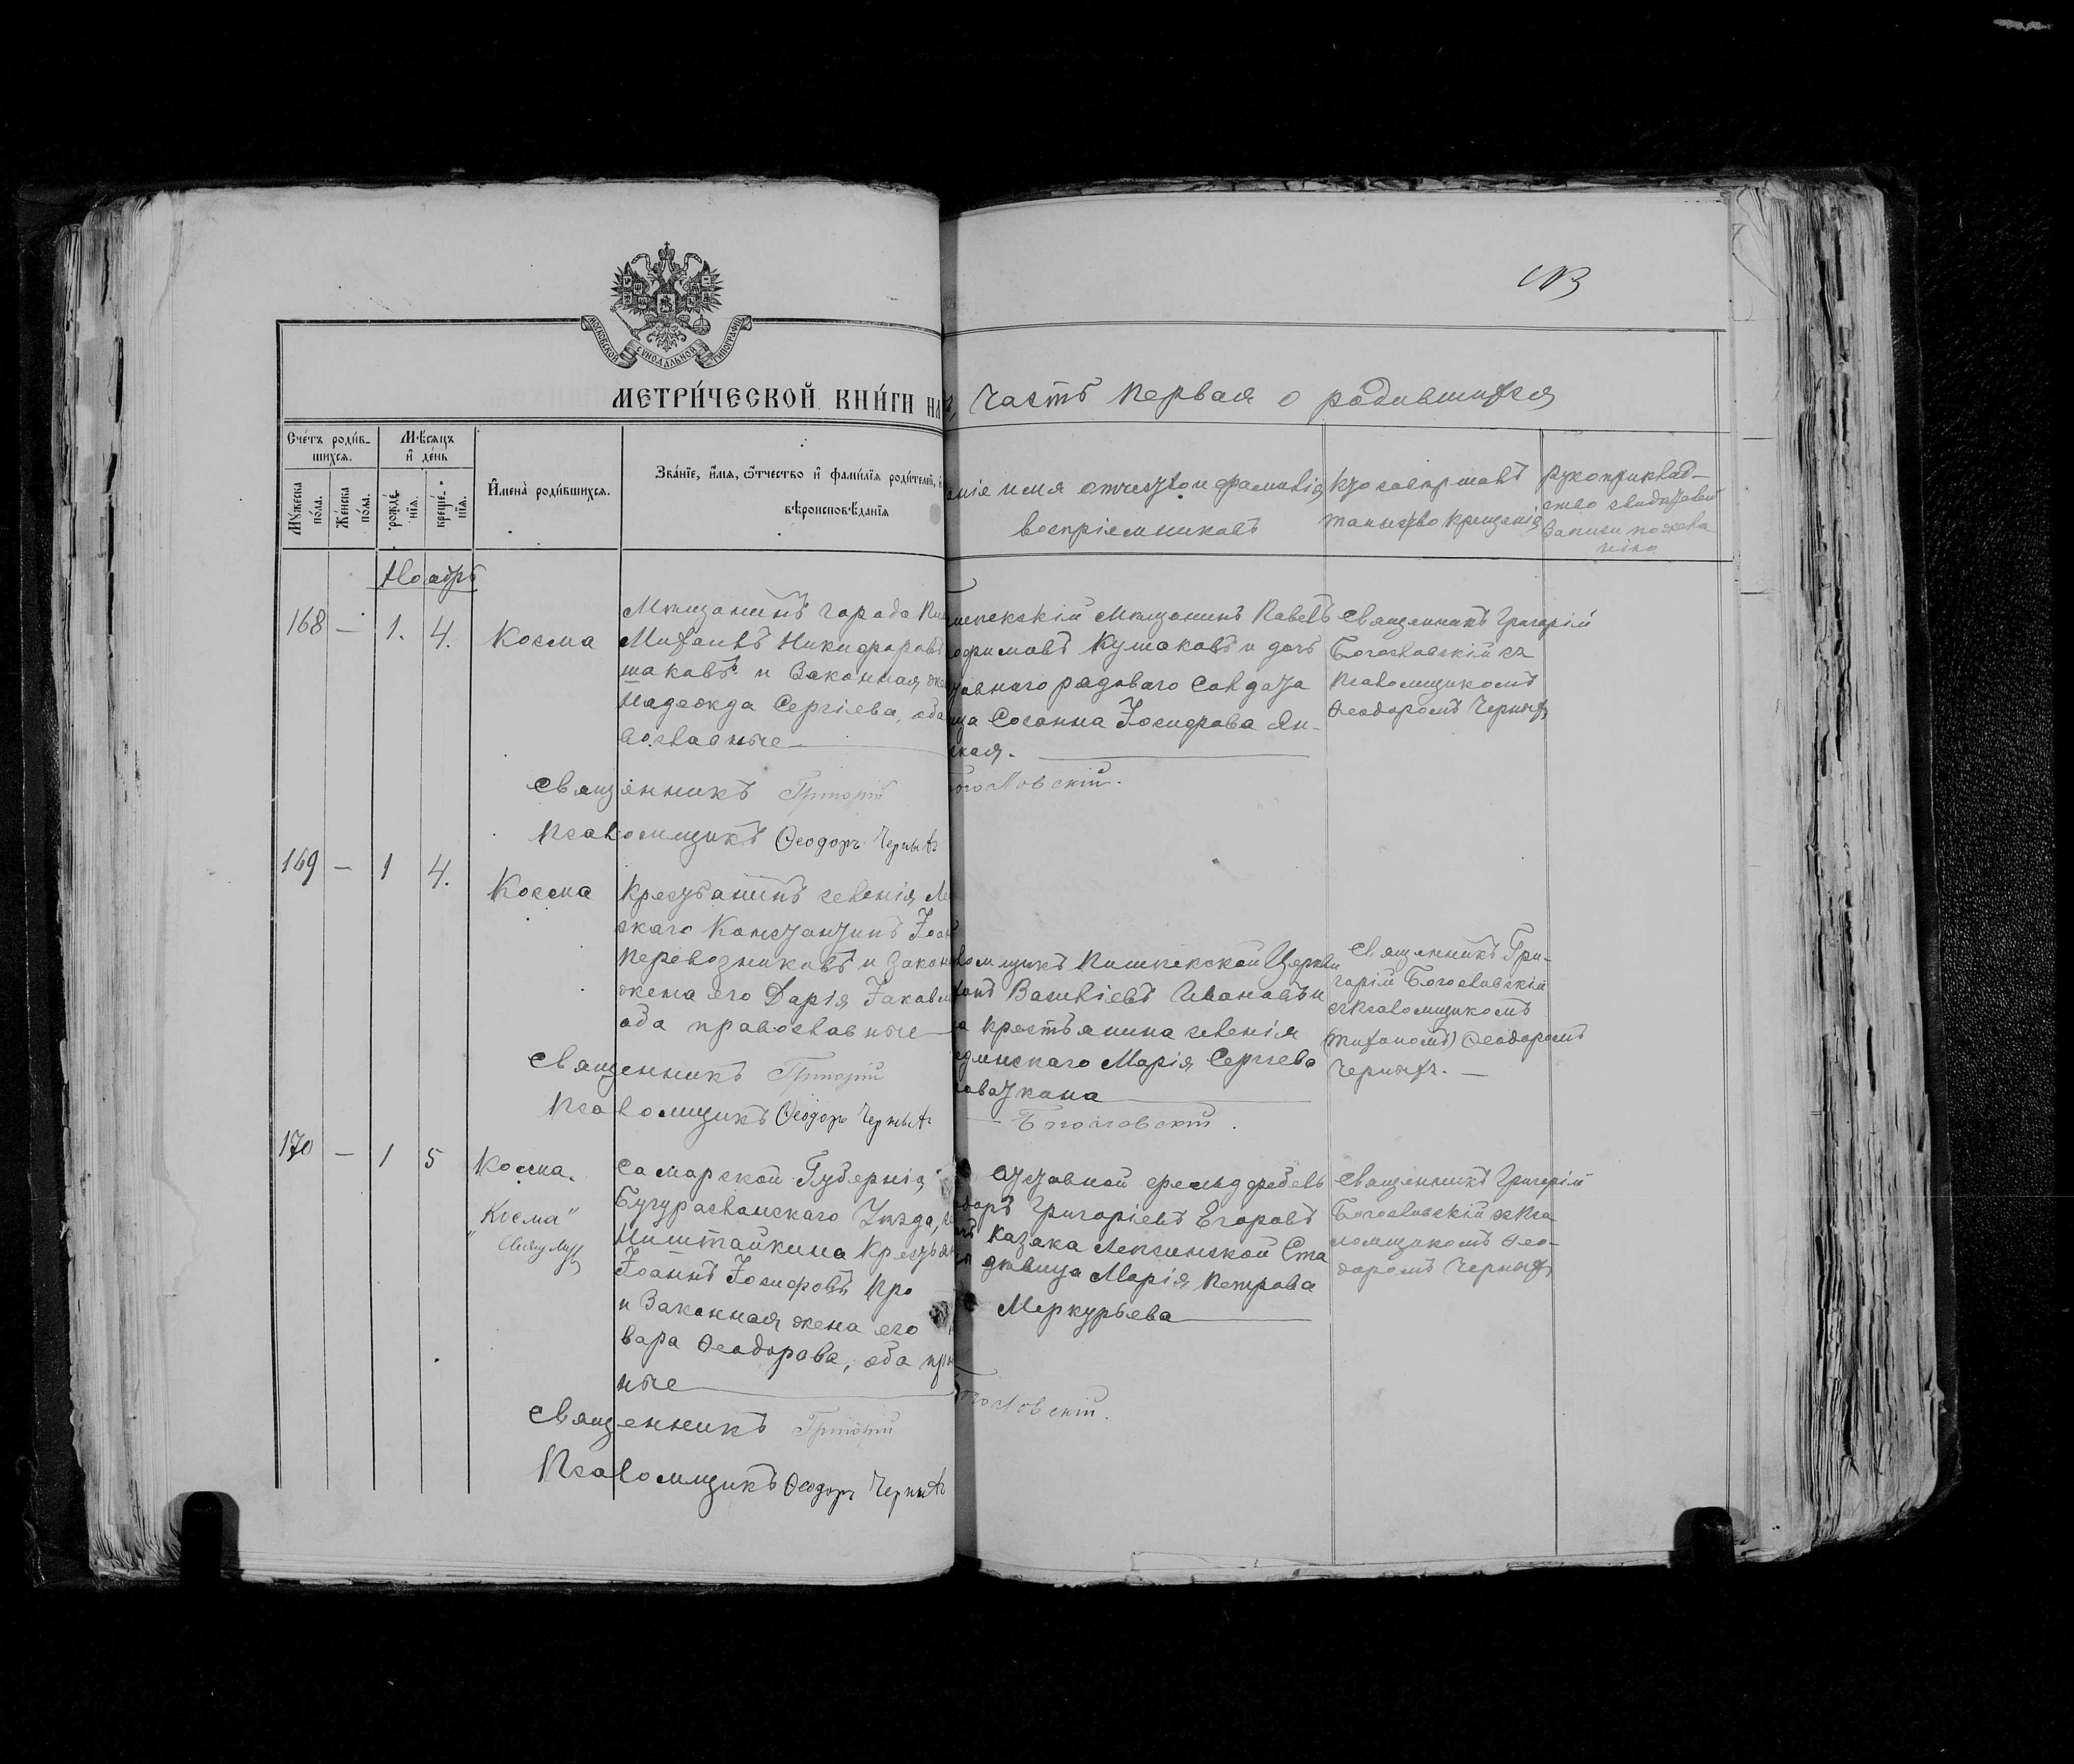 МОСКОВСКОЙ СУНОДАЛЬНОЙ ТИПОГРАФІИ
МЕТРИ́ЧЕСКОЙ КНИ́ГИ НА
часть первая о родившихся
Сче́тъ роди́в-
шихся.
Мꙋ́жеска
по́ла.
Же́нска
по́ла.
Мѣ́сяцъ
и҆ де́нь
рожде́-
нїя.
креще́-
нїя.
И҆мена̀ роди́вшихся.
Зва́нїе, и҆́мя, ѻ҆́тчество и҆ фами́лїя роди́телей,
вѣроисповѣ́данїя
аніе имя отчество и фамилія
воспріемниковъ
Кто соверш
таинство крещенія
Рукоприклад-
ство свидѣ
записи по жела
нію
Ноябрь
168 — 1. 4. Косма
Мѣщанинъ города Пи
Михаилъ Никифоровъ
шаковъ и законная же
Надежда Сергіева, оба
вославные
шпекскій мѣщанинъ Павелъ
офимовъ Кушаковъ и дочь
тавнаго рядоваго Солдата
ца Сосанна Іосифова Ян-
ская.
Священникъ Григорій
Богословскій съ
псаломщикомъ
Ѳеодоромъ Черныхъ
Священникъ Григорій
огословскій.
Псаломщикъ Ѳеодоръ Черныхъ
169 — 1 4. Косма
Крестьанинъ селенія Ле
скаго Константинъ Іоан
Перевозниковъ и закон
жена его Дарія Іаковл
оба православные
ломщикъ Пишпекской Церкви
Василіевъ Ивановъ и
а крестьянина селенія
динскаго Марія Сергѣева
Священникъ Гри-
горій Богословскій
съ псаломщикомъ
Ѳеодоромъ
Черныхъ. —
Священникъ Григорій
Богословскій.
Псаломщикъ Ѳеодоръ Черныхъ
170 — 1 5 Косма.
"Косма"
Самарской Губерніи,
Бугурасланскаго Уѣзда, се
Крестьян
Іоаннъ Іосифовъ Про
и законная жена его
вара Ѳеодорова, оба пра
ные
Отставной фельдфебель
одоръ Григоріевъ Егоровъ
Казака Лепсинской Ста
дѣвица Марія Петрова
Меркурьева
Священникъ Григорій
Богословскій съ пса
ломщикомъ Ѳео-
доромъ Черныхъ
Священникъ Григорій
Богословскій.
Псаломщикъ Ѳеодоръ Черныхъ